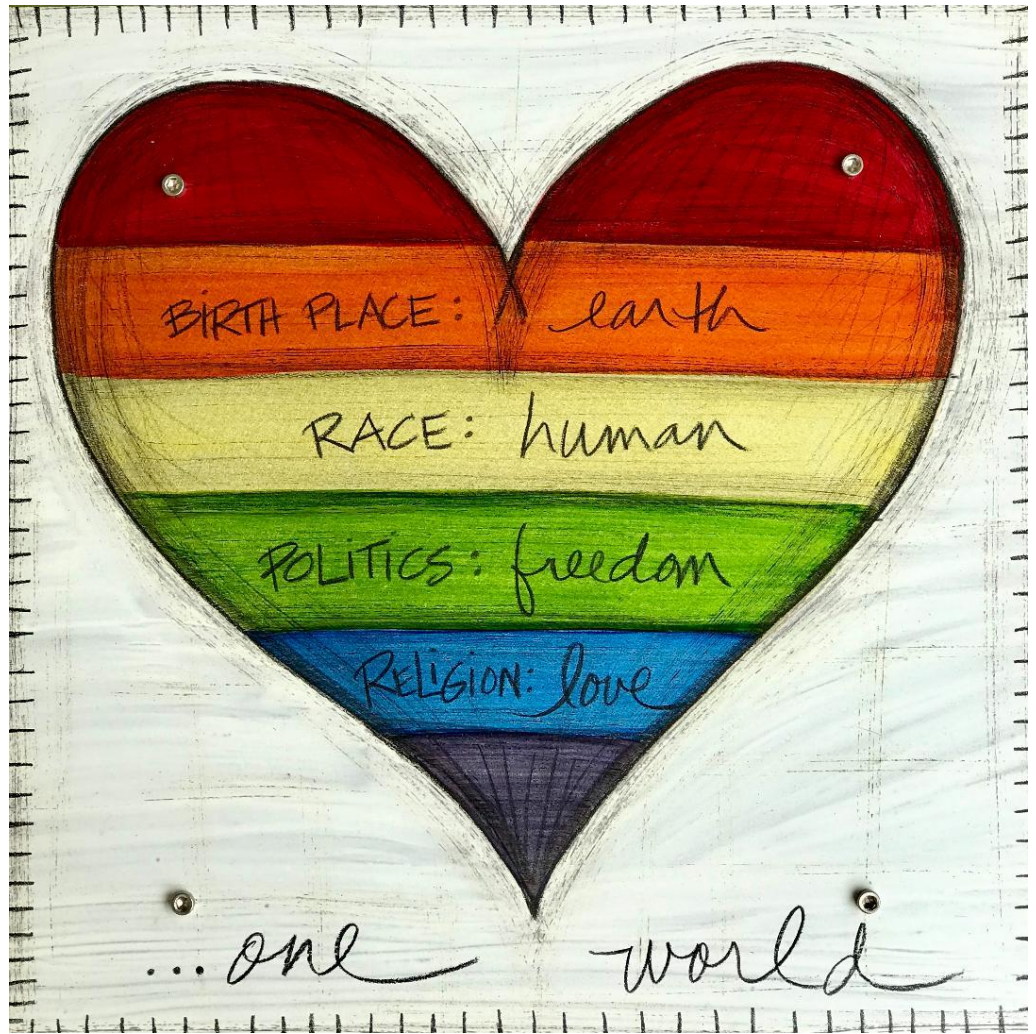 BIRTH PLACE: earth
RACE: human
POLITICS: freedom
RELIGION: love
...one world